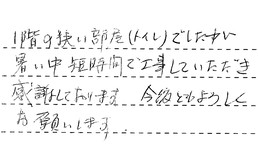 1階の狭い部屋(トイレ)でしたが
暑い中短時間で工事していただき
感謝しております 今後ともよろしく
お願いします。